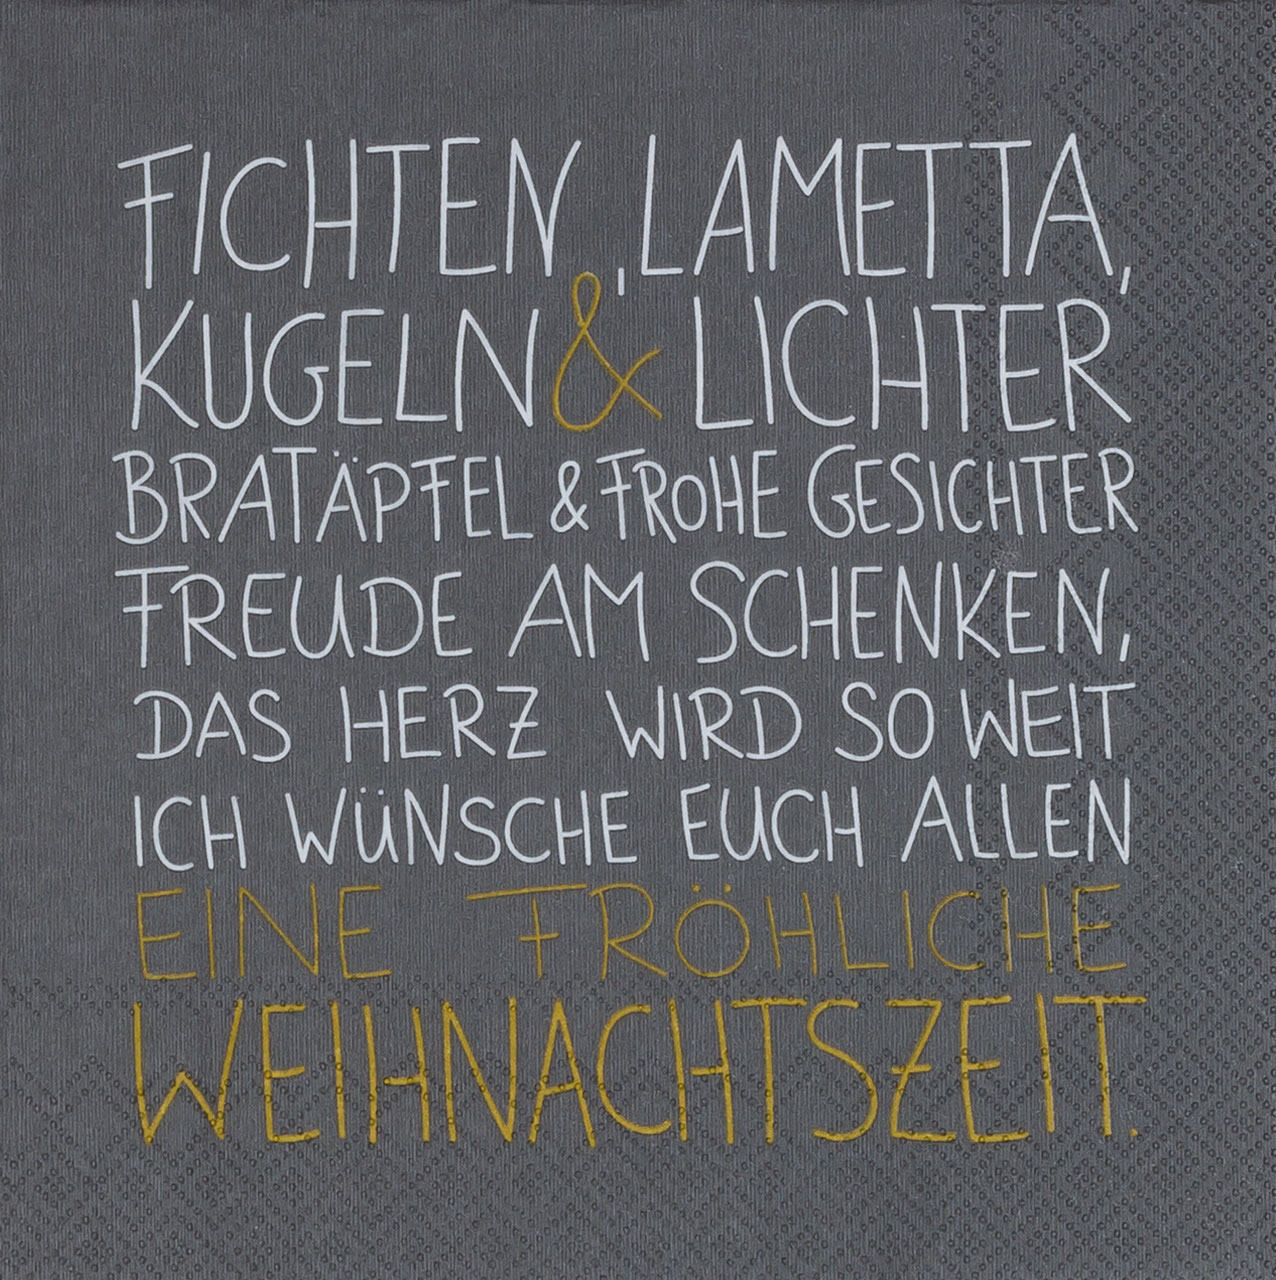 FICHTEN ,LAMETTA,
KUGELN & LICHTER
BRATÄPFEL & FROHE GESICHTER
FREUDE AM SCHENKEN,
DAS HERZ WIRD SO WEIT
ICH WÜNSCHE EUCH ALLEN
EINE FRÖHLICHE
WEIHNACHTSZEIT.